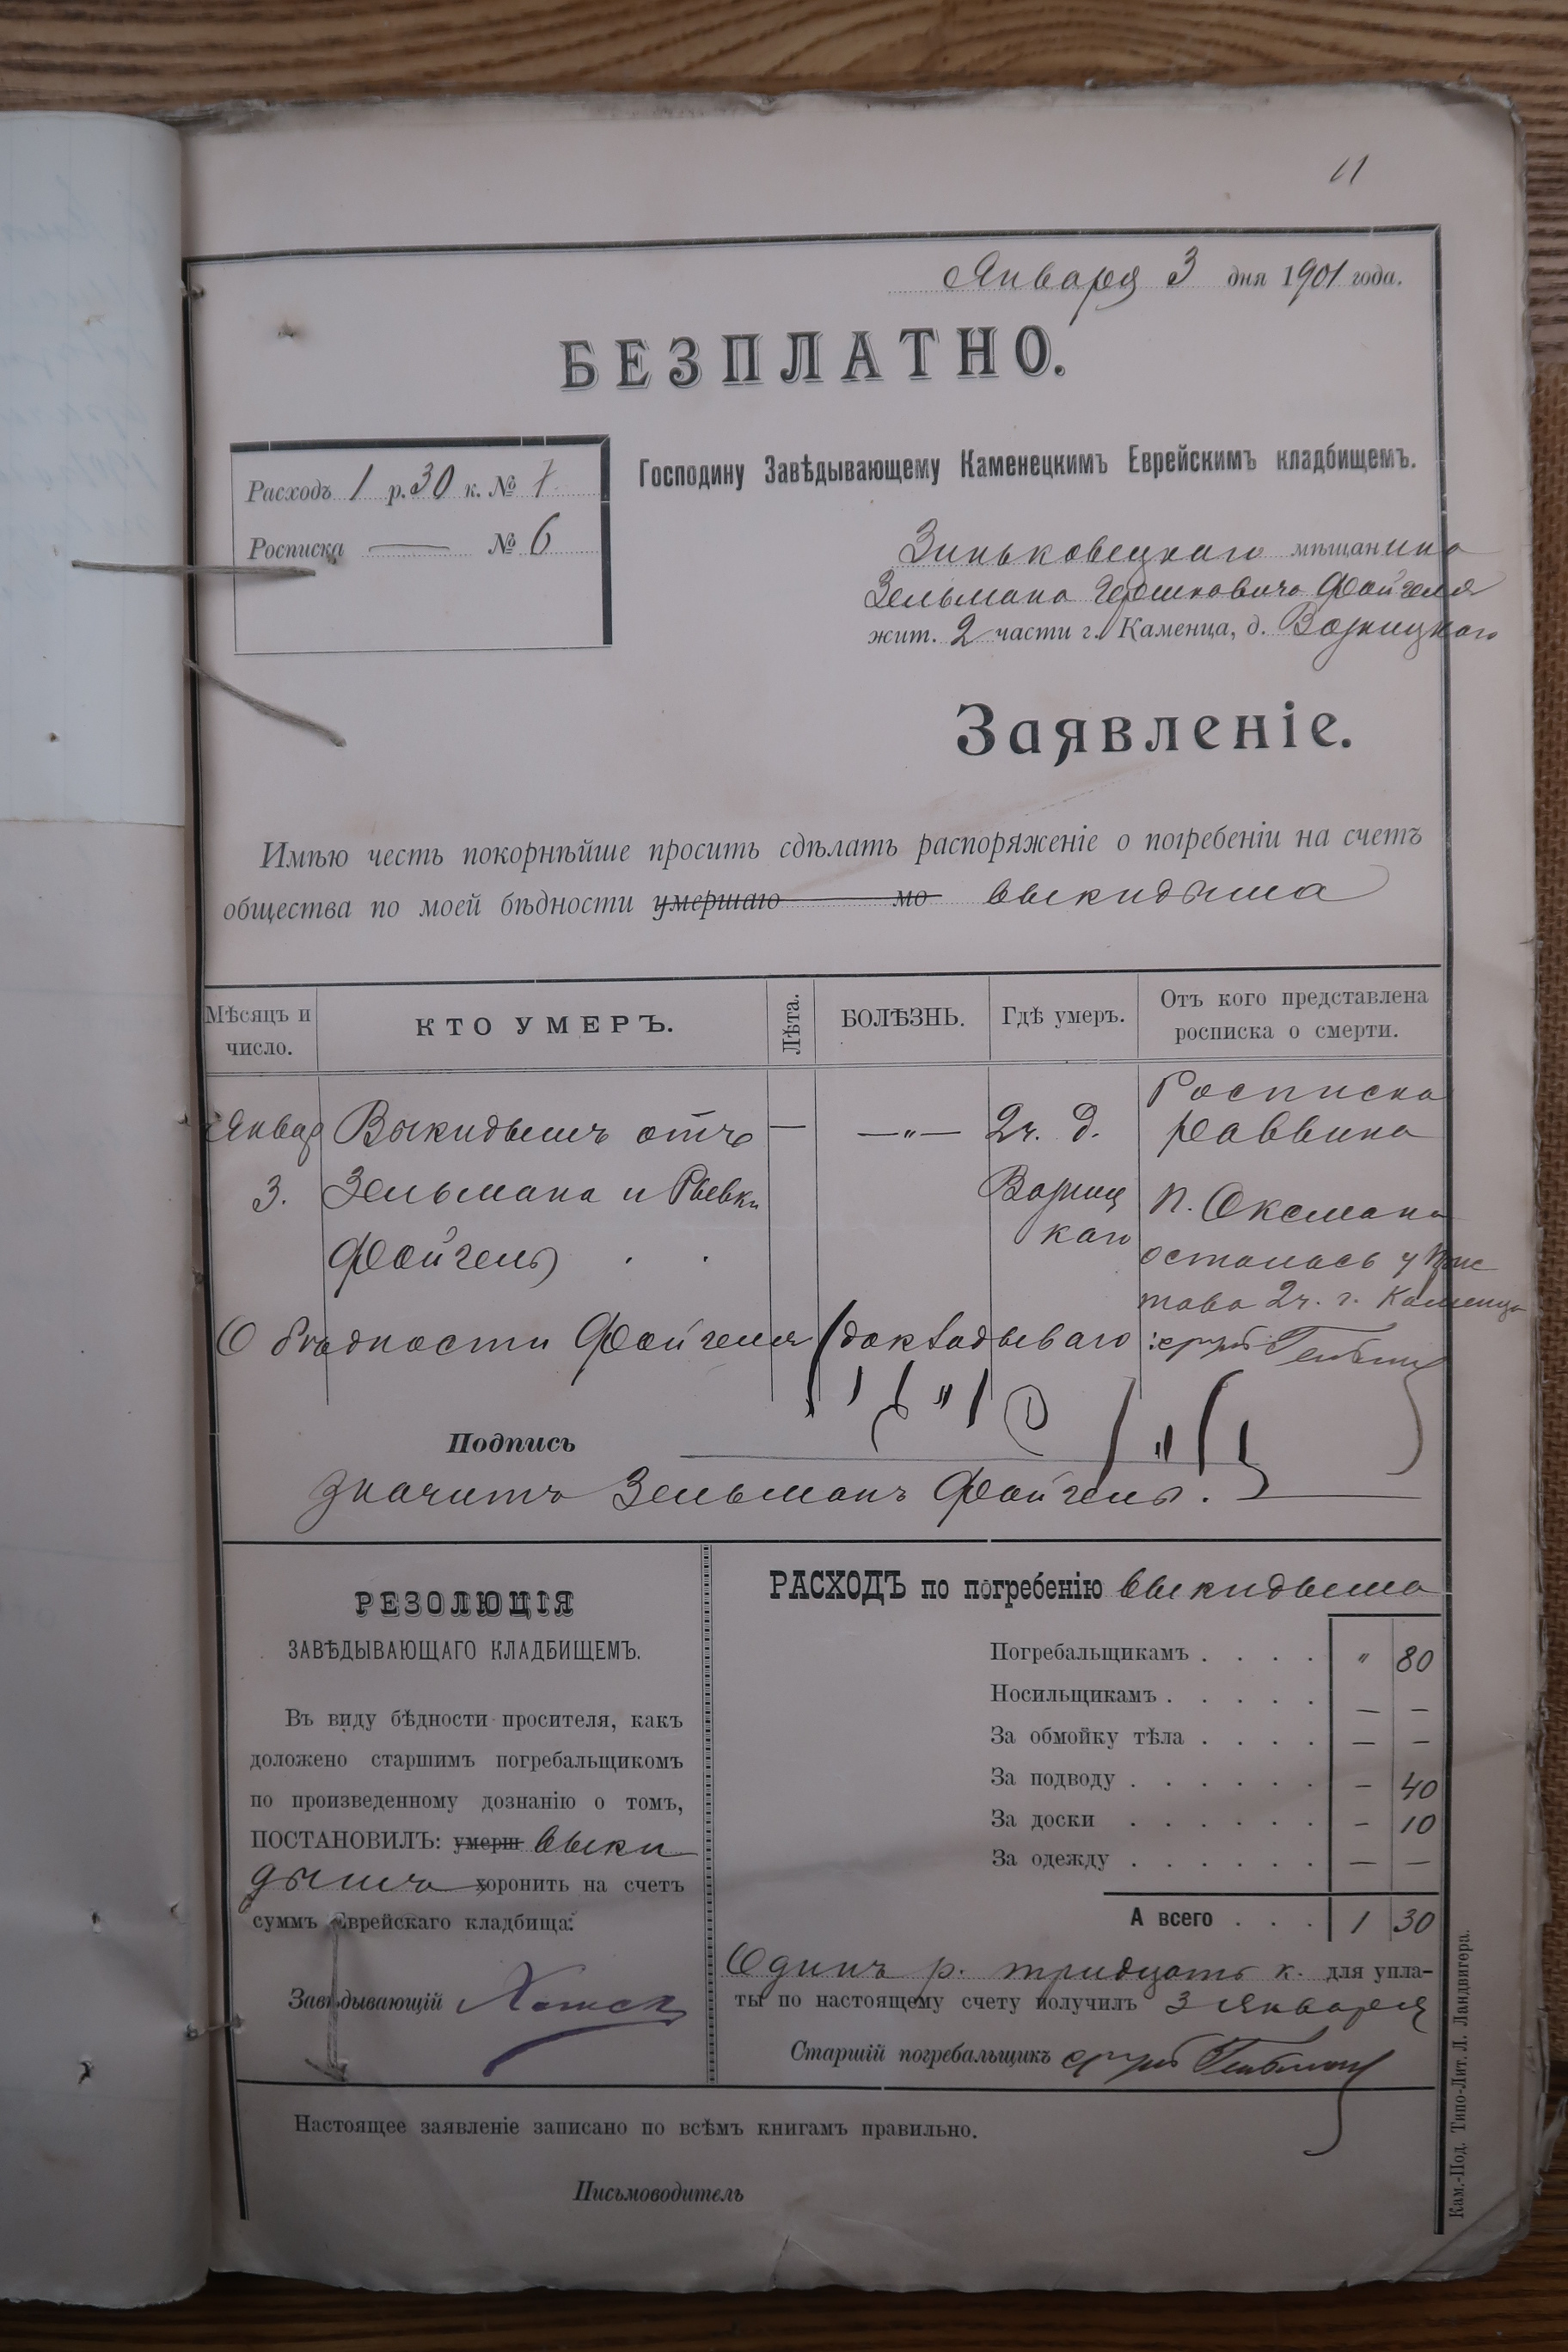 11
Января 3 дня 1901 года.
БЕЗПЛАТНО.
Расходъ 1 р. 30 к. № 7
Росписка — № 6
Господину Завѣдывающему Каменецкимъ Еврейскимъ кладбищемъ.
Зиньковецкаго мѣщанина
Зельмана Гершковича Файгеля
жит. 2 части г. Каменца, д.
Заявленіе.
Имѣю честь покорнѣйше просить сдѣлать распоряженіе о погребеніи на счетъ
общества по моей бѣдности умершаго мо выкидыша
Мѣсяцъ и число.
КТО УМЕРЪ.
Лѣта.
БОЛѢЗНЬ.
Гдѣ умеръ.
Отъ кого представлена росписка о смерти.
Январ 3.
Выкидышъ отъ
Зельмана и Ривки
Файгель
—
—"—
2ч. д.
Росписка
раввина
п. Оксмана
осталась у При
става 2ч. г. Каменца
О бѣдности Файгеля докладывалъ
Подпись
значитъ Зельманъ Файгель.
РЕЗОЛЮЦІЯ
ЗАВѢДЫВАЮЩАГО КЛАДБИЩЕМЪ.
Въ виду бѣдности просителя, какъ
доложено старшимъ погребальщикомъ
по произведенному дознанію о томъ,
ПОСТАНОВИЛЪ: умерш выки
дыша хоронить на счетъ
суммъ Еврейскаго кладбища.
Завѣдывающій
РАСХОДЪ по погребенію выкидыша
Погребальщикамъ . . . . " 80
Носильщикамъ . . . . . — —
За обмойку тѣла . . . . — —
За подводу . . . . . . — 40
За доски . . . . . . — 10
За одежду . . . . . . — —
А всего . . . 1 30
Одинъ р. тридцать к. для упла-
ты по настоящему счету получилъ 3 Января
Старшій погребальщикъ
Настоящее заявленіе записано по всѣмъ книгамъ правильно.
Письмоводитель
Кам.-Под. Типо-Лит. Л. Ландвигера.